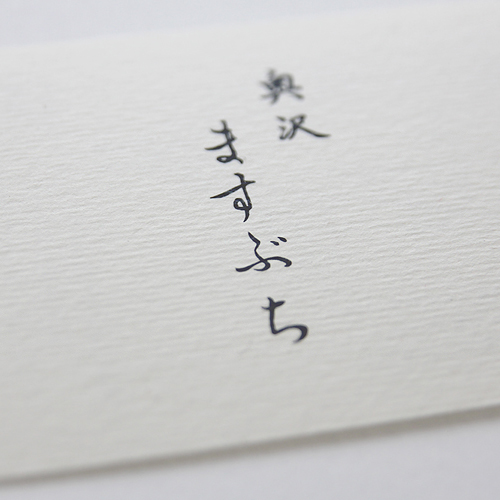 奥沢
ますぶち